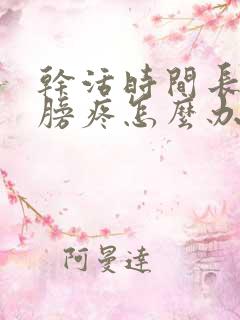 幹活時間長
膀疼怎麼办
阿曼達